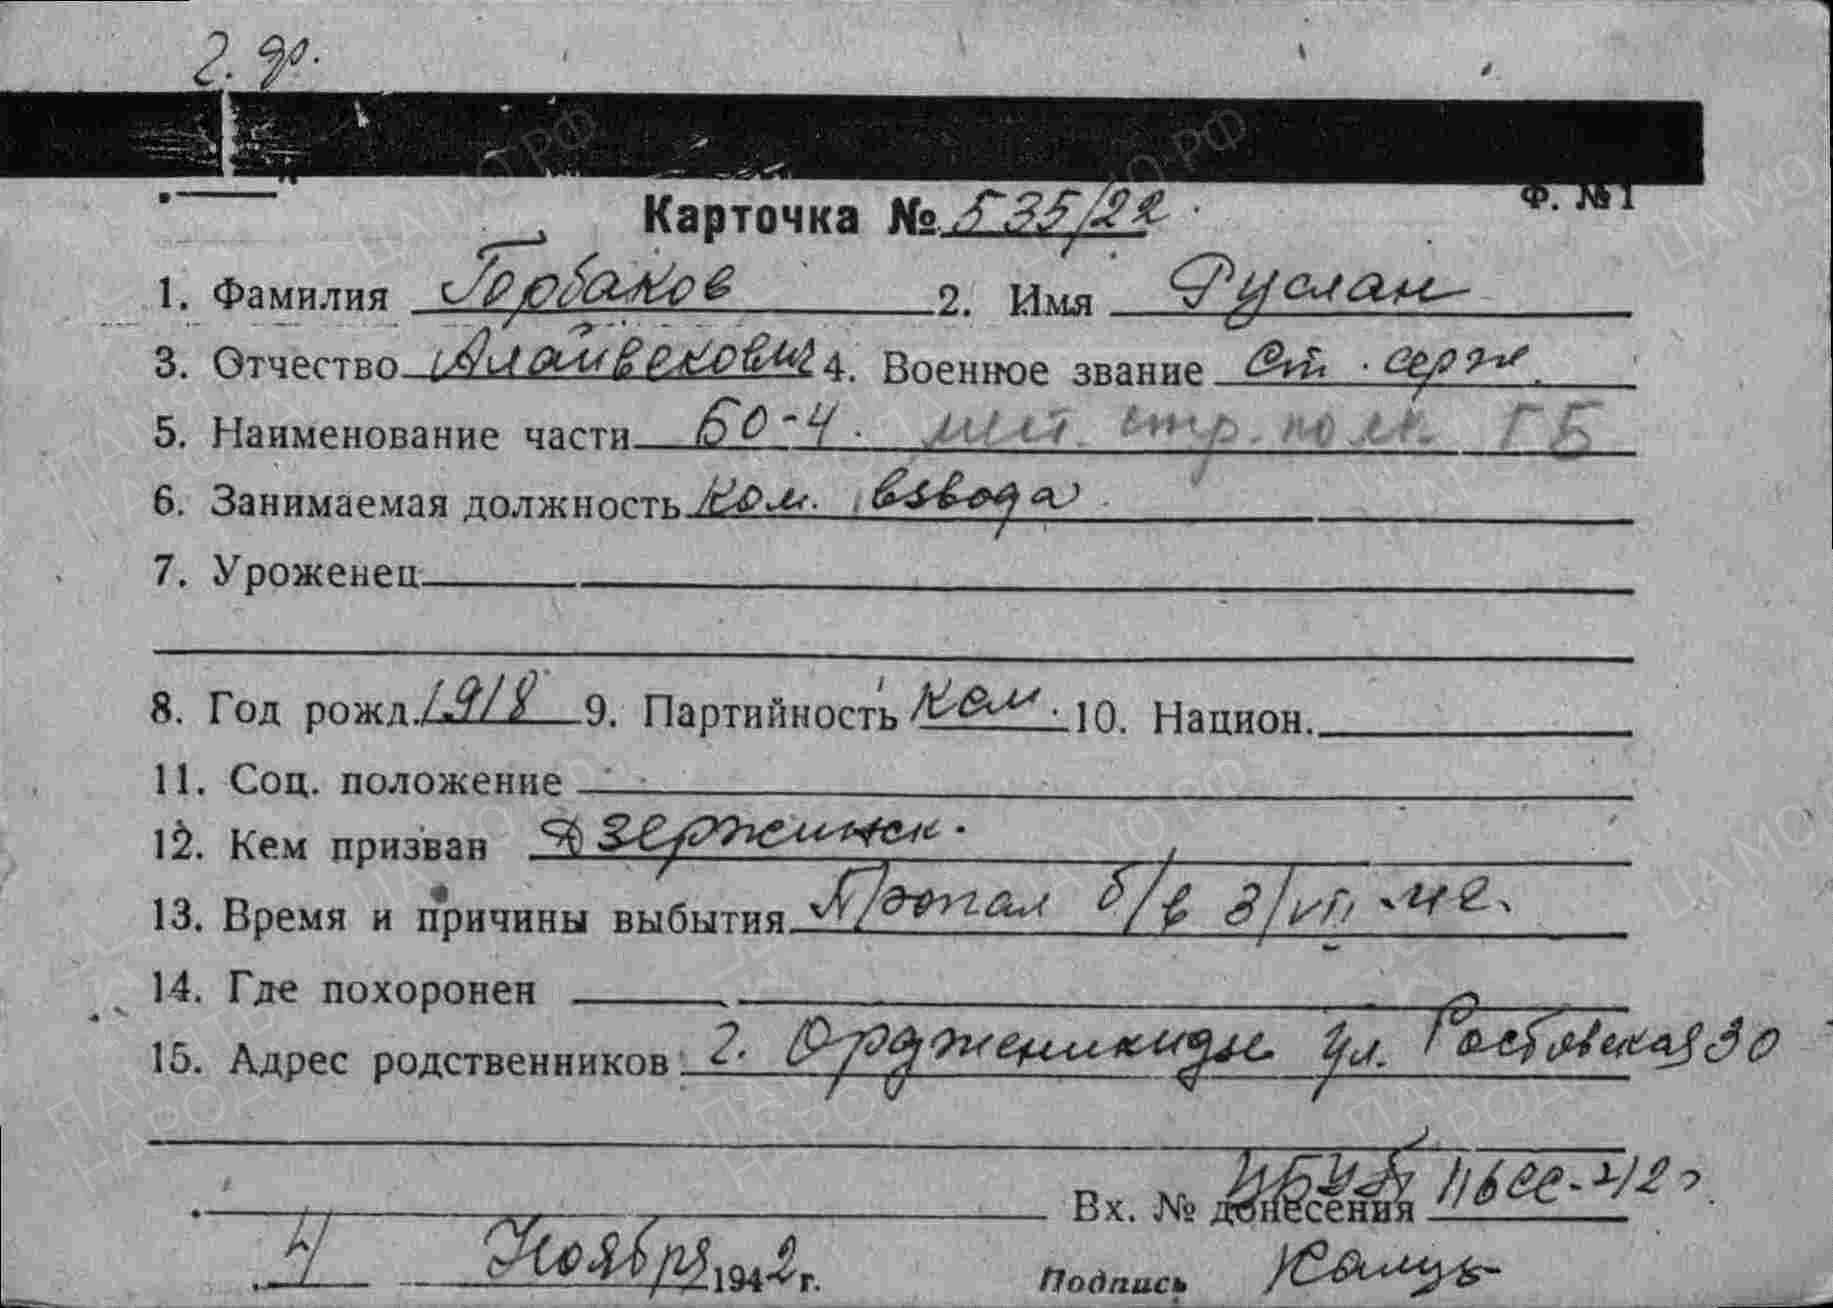 2. др.
Ф. №1
Карточка № 535/22
1. Фамилия Горбаков 2. Имя Руслан
3. Отчество Алайбекович 4. Военное звание Ст. серж.
5. Наименование части 60-4. стр. полк ГБ
6. Занимаемая должность Ком. взвода
7. Уроженец
8. Год рожд. 1918 9. Партийность Ком. 10. Национ.
11. Соц. положение
12. Кем призван Дзержинск.
13. Время и причины выбытия Пропал б/в 3/VII-42.
14. Где похоронен
15. Адрес родственников: г. Орджоникидзе ул. Ростовская 30
Вх. № донесения
4 Ноября 1942 г. Подпись